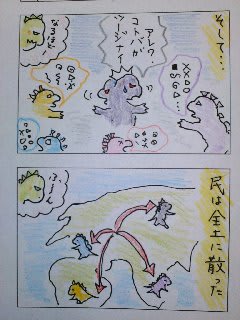 そして…
アレッ
コトバガ
ツージナイ
なるほど
民は全土に散った
ふーん